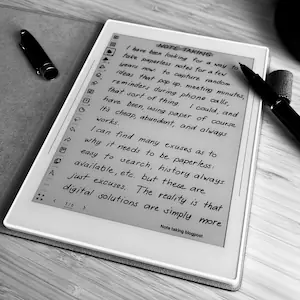 NOTE TAKING
I have been looking for a way to
take paperless notes for a few
years now to capture random
ideas that pop up, meeting minutes,
reminders during phone calls,
that sort of thing. I could, and
have been, using paper of course.
Its cheap, abundant, and always
works.
I can find many excuses as to
why it needs to be paperless:
easy to search, history always
available, etc. but these are
just excuses. The reality is that
digital solutions are simply more
Note taking blogpost